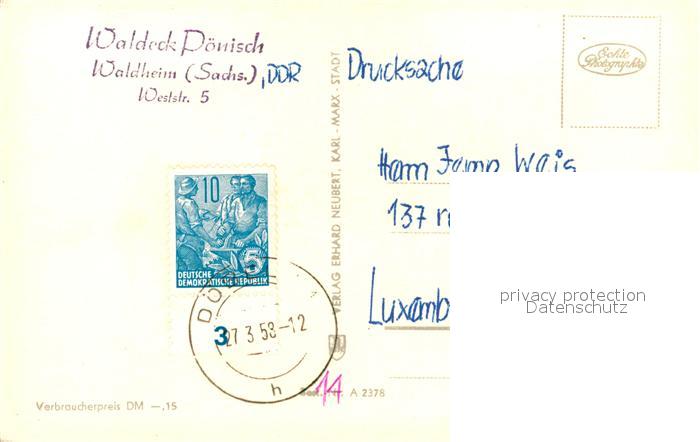 Waldeck Pönisch
Waldheim (Sachs.), DDR
Weststr. 5
Drucksache
Echte
Photographie
VERLAG ERHARD NEUBERT, KARL-MARX-STADT
Herrn
137
Luxemb
10
5
DEUTSCHE
DEMOKRATISCHE REPUBLIK
DÖ
27 3 58-12
h
3
14
A 2378
Verbraucherpreis DM —,15
privacy protection
Datenschutz